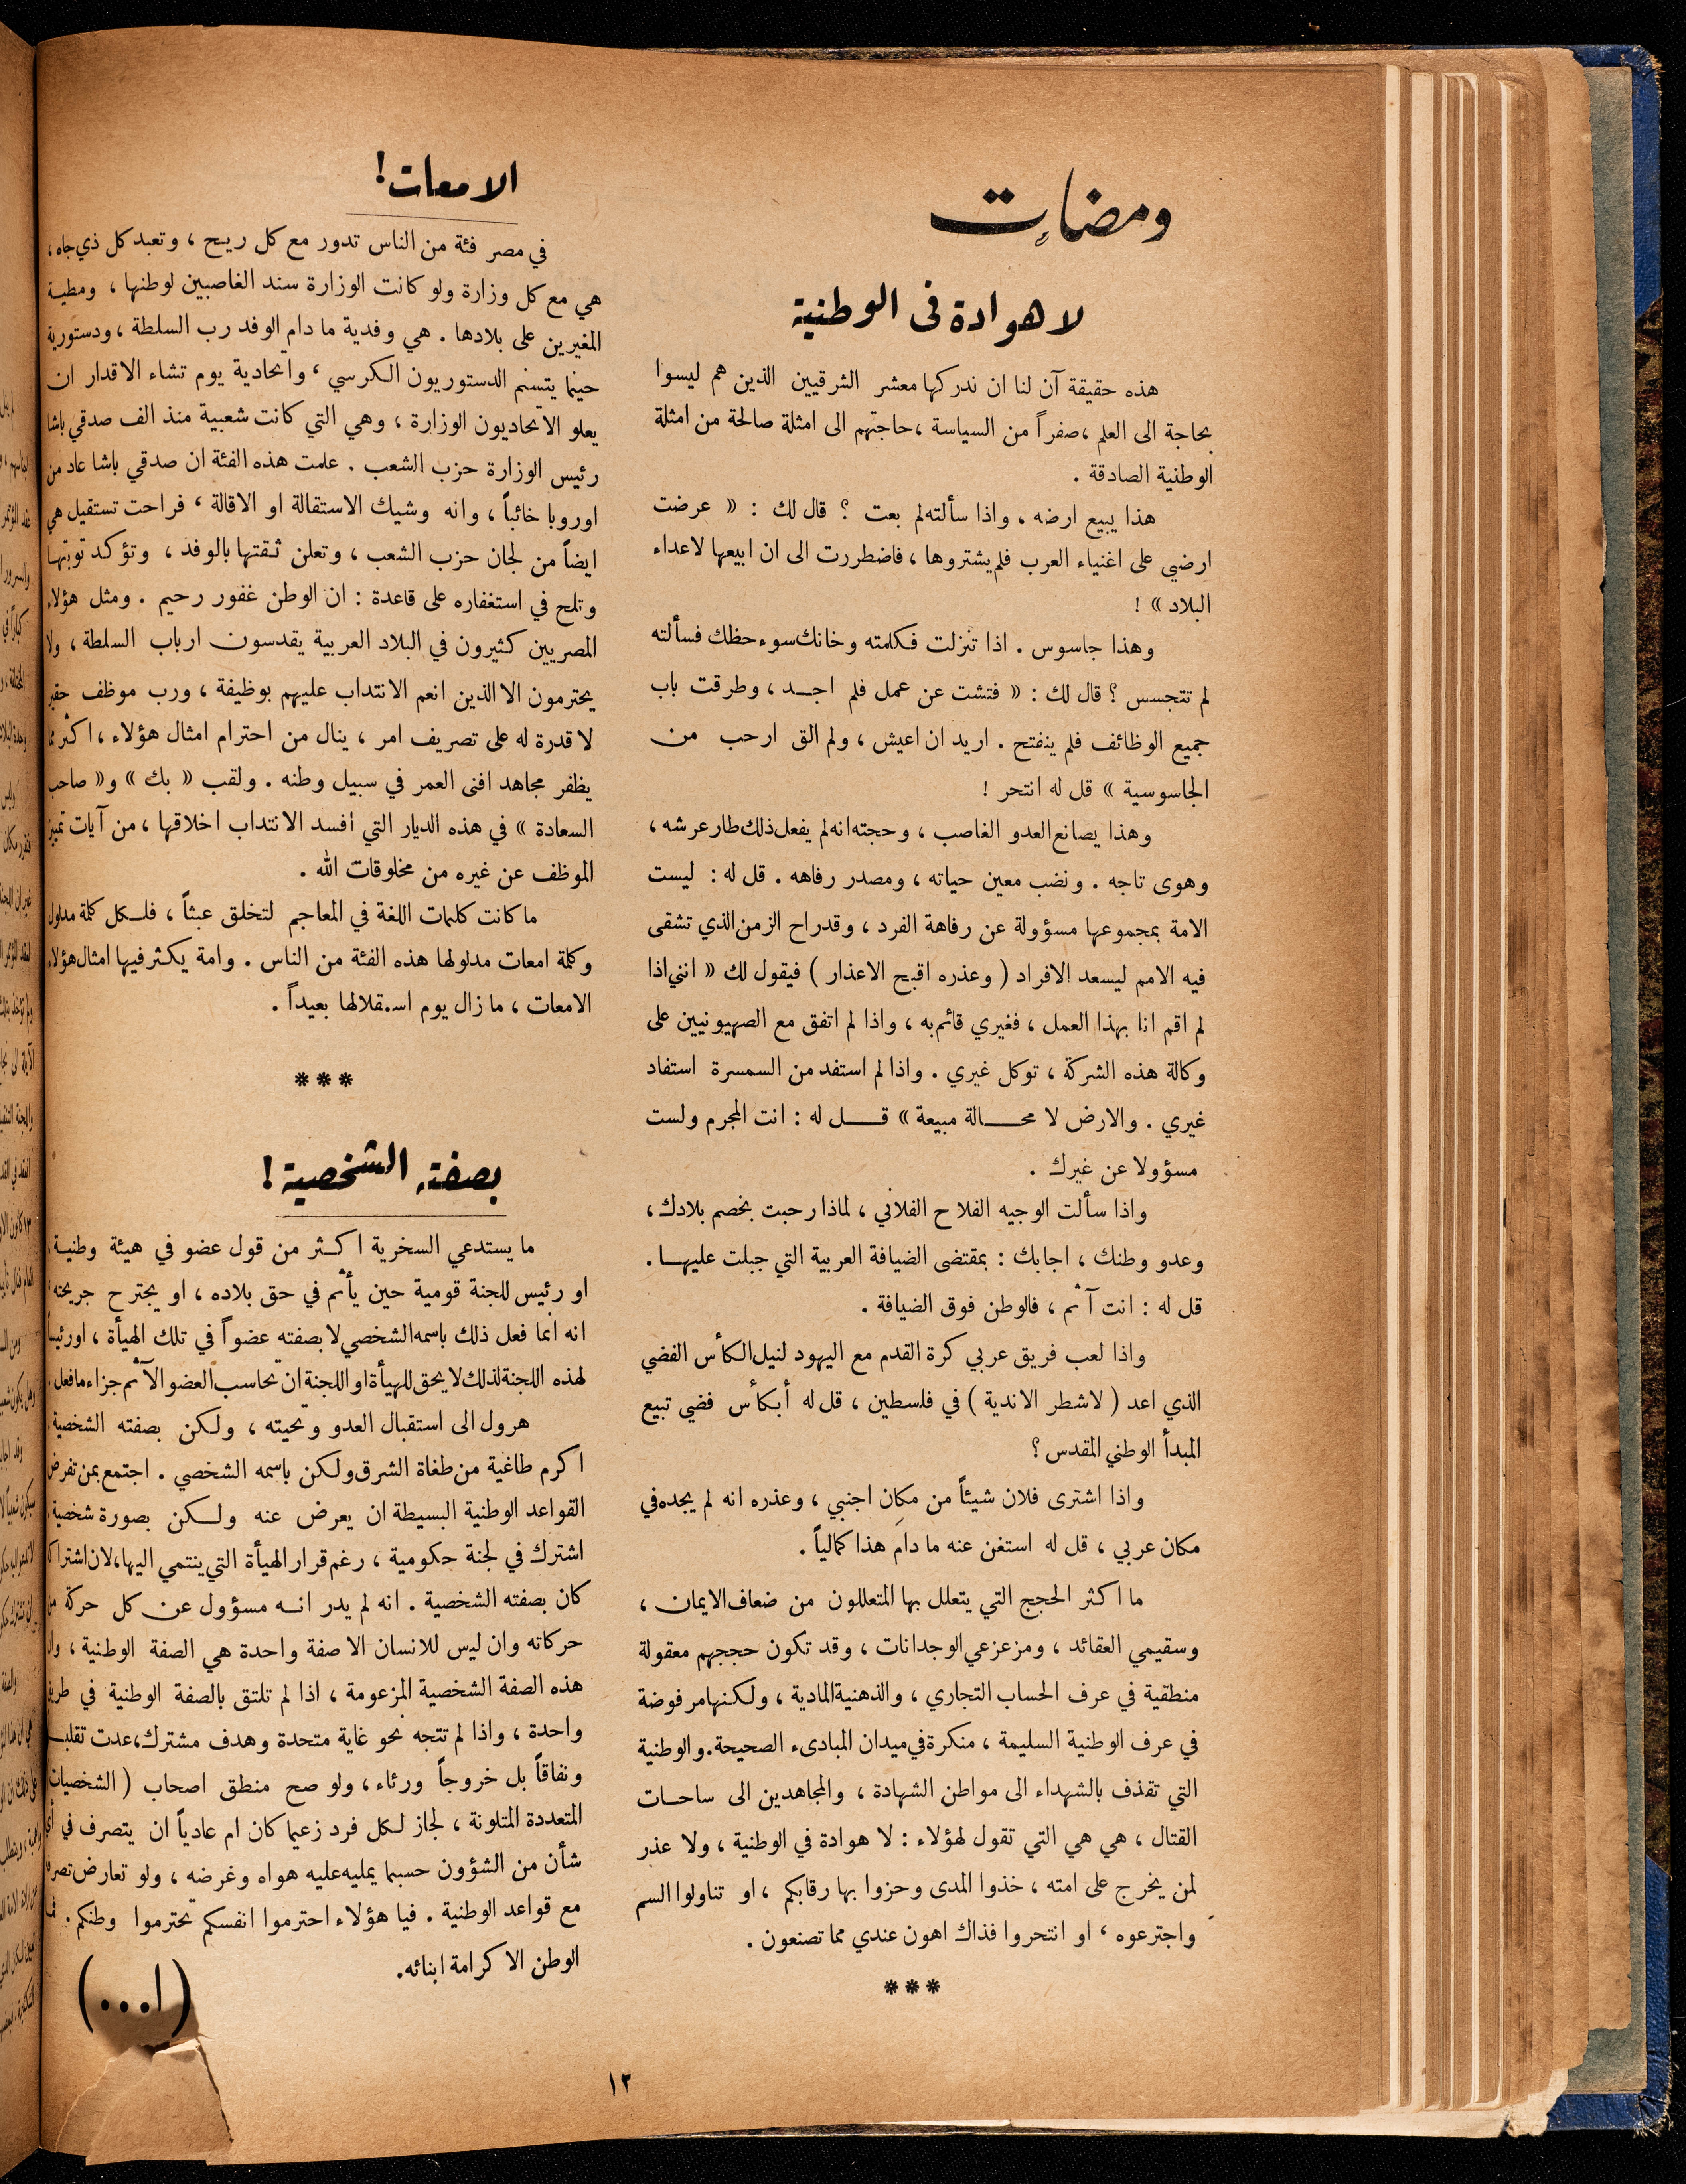 ومضات
لا هوادة في الوطنية
هذه حقيقة آن لنا ان ندركها معشر الشرقيين الذين هم ليسوا
بحاجة الى العلم ، صفراً من السياسة ، حاجتهم الى امثلة صالحة من امثلة
الوطنية الصادقة .
هذا يبيع ارضه ، واذا سألته لم بعت ؟ قال لك : « عرضت
ارضي على اغنياء العرب فلم يشتروها ، فاضطررت الى ان ابيعها لاعداء
البلاد » !
وهذا جاسوس . اذا تنزلت فكلمته وخانك سوء حظك فسألته
لم تتجسس ؟ قال لك : « فتشت عن عمل فلم اجد ، وطرقت باب
جميع الوظائف فلم ينفتح . اريد ان اعيش ، ولم الق ارحب من
الجاسوسية » قل له انتحر !
وهذا يصانع العدو الغاصب ، وحجته انه لم يفعل ذلك طار عرشه ،
وهوى تاجه . ونضب معين حياته ، ومصدر رفاهه . قل له : ليست
الامة بمجموعها مسؤولة عن رفاهة الفرد ، وقد راح الزمن الذي تشقى
فيه الامم ليسعد الافراد ( وعذره اقبح الاعذار ) فيقول لك « انني اذا
لم اقم انا بهذا العمل ، فغيري قائم به ، واذا لم اتفق مع الصهيونيين على
وكالة هذه الشركة ، توكل غيري . واذا لم استفد من السمسرة استفاد
غيري . والارض لا محالة مبيعة » قل له : انت المجرم ولست
مسؤولا عن غيرك .
واذا سألت الوجيه الفلاح الفلاني ، لماذا رحبت بخصم بلادك ،
وعدو وطنك ، اجابك : بمقتضى الضيافة العربية التي جبلت عليها .
قل له : انت آثم ، فالوطن فوق الضيافة .
واذا لعب فريق عربي كرة القدم مع اليهود لنيل الكأس الفضي
الذي اعد ( لاشطر الاندية ) في فلسطين ، قل له أبكأس فضي تبيع
المبدأ الوطني المقدس ؟
واذا اشترى فلان شيئاً من مكان اجنبي ، وعذره انه لم يجده في
مكان عربي ، قل له استغن عنه ما دام هذا كمالياً .
ما اكثر الحجج التي يتعلل بها المتعللون من ضعاف الايمان ،
وسقيمي العقائد ، ومزعزعي الوجدانات ، وقد تكون حججهم معقولة
منطقية في عرف الحساب التجاري ، والذهنية المادية ، ولكنها مرفوضة
في عرف الوطنية السليمة ، منكرة في ميدان المبادىء الصحيحة. والوطنية
التي تقذف بالشهداء الى مواطن الشهادة ، والمجاهدين الى ساحات
القتال ، هي هي التي تقول لهؤلاء : لا هوادة في الوطنية ، ولا عذر
لمن يخرج على امته ، خذوا المدى وحزوا بها رقابكم ، او تناولوا السم
واجترعوه ، او انتحروا فذاك اهون عندي مما تصنعون .
***
الامعات !
في مصر فئة من الناس تدور مع كل ريح ، وتعبد كل ذي جاه ،
هي مع كل وزارة ولو كانت الوزارة سند الغاصبين لوطنها ، ومطية
المغيرين على بلادها . هي وفدية ما دام الوفد رب السلطة ، ودستورية
حينما يتسنم الدستوريون الكرسي ، واتحادية يوم تشاء الاقدار ان
يعلو الاتحاديون الوزارة ، وهي التي كانت شعبية منذ الف صدقي باشا
رئيس الوزارة حزب الشعب . علمت هذه الفئة ان صدقي باشا عاد من
اوروبا خائباً ، وانه وشيك الاستقالة او الاقالة ، فراحت تستقيل هي
ايضاً من لجان حزب الشعب ، وتعلن ثقتها بالوفد ، وتؤكد توبتها
وتلح في استغفاره على قاعدة : ان الوطن غفور رحيم . ومثل هؤلاء
المصريين كثيرون في البلاد العربية يقدسون ارباب السلطة ، ولا
يحترمون الا الذين انعم الانتداب عليهم بوظيفة ، ورب موظف حقير
لا قدرة له على تصريف امر ، ينال من احترام امثال هؤلاء ، اكثر مما
يظفر مجاهد افنى العمر في سبيل وطنه . ولقب « بك » و« صاحب
السعادة » في هذه الديار التي افسد الانتداب اخلاقها ، من آيات تمييز
الموظف عن غيره من مخلوقات الله .
ما كانت كلمات اللغة في المعاجم لتخلق عبثاً ، فلكل كلمة مدلول
وكلمة امعات مدلولها هذه الفئة من الناس . وامة يكثر فيها امثال هؤلاء
الامعات ، ما زال يوم استقلالها بعيداً .
***
بصفته الشخصية !
ما يستدعي السخرية اكثر من قول عضو في هيئة وطنية ،
او رئيس للجنة قومية حين يأثم في حق بلاده ، او يجترح جريحته ،
انه انما فعل ذلك باسمه الشخصي لا بصفته عضواً في تلك الهيأة ، او رئيساً
لهذه اللجنة لذلك لا يحق للهيأة او اللجنة ان تحاسب العضو الآثم جزاء ما فعل .
هرول الى استقبال العدو وتحيته ، ولكن بصفته الشخصية .
اكرم طاغية من طغاة الشرق ولكن باسمه الشخصي . اجتمع بمن تفرض
القواعد الوطنية البسيطة ان يعرض عنه ولكن بصورة شخصية .
اشترك في لجنة حكومية ، رغم قرار الهيأة التي ينتمي اليها، لان اشتراكه
كان بصفته الشخصية . انه لم يدر انه مسؤول عن كل حركة من
حركاته وان ليس للانسان الا صفة واحدة هي الصفة الوطنية ، وان
هذه الصفة الشخصية المزعومة ، اذا لم تلتق بالصفة الوطنية في طريق
واحدة ، واذا لم تتجه نحو غاية متحدة وهدف مشترك، عدت تقلباً
ونفاقاً بل خروجاً ورئاء ، ولو صح منطق اصحاب ( الشخصيات
المتعددة المتلونة ، لجاز لكل فرد زعيما كان ام عادياً ان يتصرف في أي
شأن من الشؤون حسبما يمليه عليه هواه وغرضه ، ولو تعارض تصرفه
مع قواعد الوطنية . فيا هؤلاء احترموا انفسكم تحترموا وطنكم . فما
الوطن الا كرامة ابنائه.
(ا...)
١٢